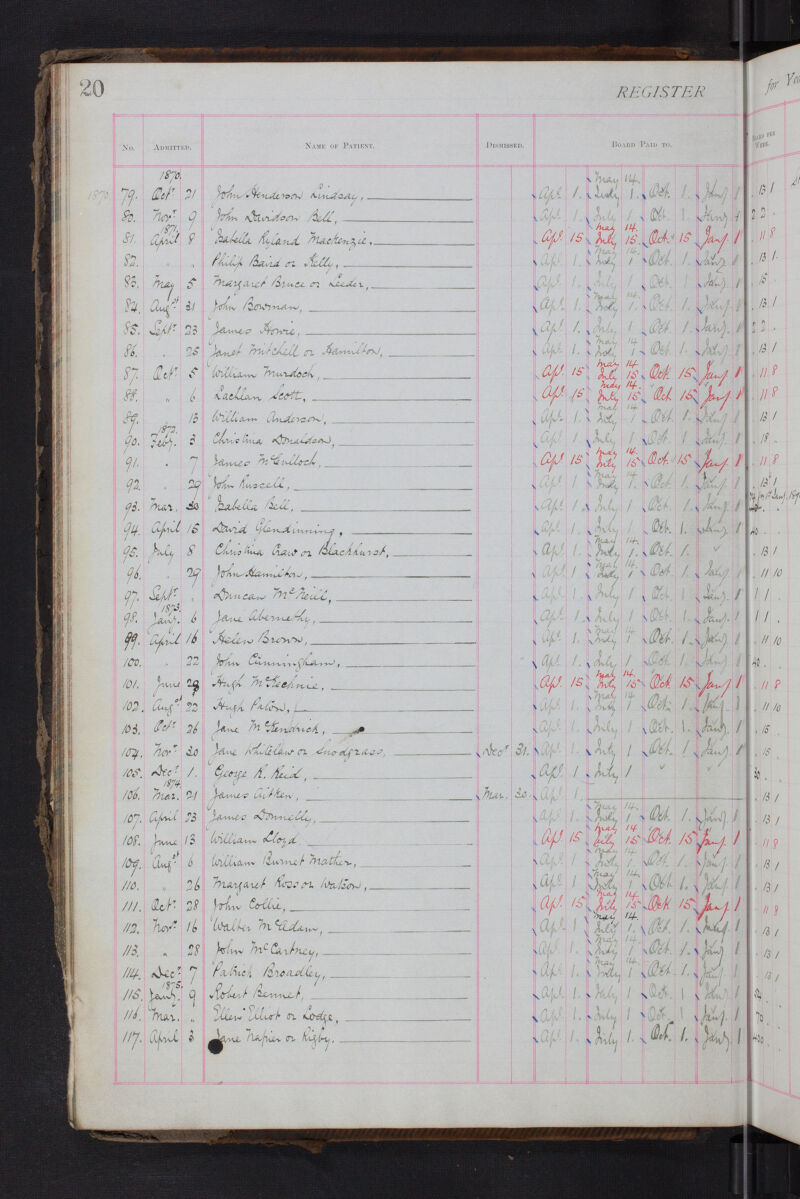 20 REGISTER for
No. ADMITTED. NAME OF PATIENT. DISMISSED. BOARD PAID TO. PER WEEK.
1870.
May 14.
1870 79. Oct 21 John Henderson Lindsay, Apl. 1. July 1. Oct. 1. Jany 1 . 13 1
80. Novr 9 John Davidson Bell, Apl. 1. July 1 Oct. 1. Jany 1 22 .
1871. May 14.
81. April 8 Isabella Ryland Mackenzie, Apl. 15 July 15. Oct. 15 Jany. 1 . 11 8
May 14.
82. . . Philip Baird or Kelly, Apl. 1. July 1 Oct. 1. Jany 1 . 13 1.
83. May 5 Margaret Bruce or Leeder, Apl. 1. July 1 Oct. 1. Jany. 1 . 15 .
May 14.
84. Augst 31 John Bowman, Apl. 1. July 1. Oct. 1. Jany. 1 . 13 1
85. Septr 23 James Howie, Apl. 1. July 1. Oct. 1. Jany. 1 22 .
May 14
86. . 25 Janet Mitchell or Hamilton, Apl. 1. July 1 Oct. 1. Jany. 1 . 13 1
May 14.
87. Octr 5 William Murdoch, Apl. 15 July 15 Oct. 15 Jany 1 . 11 8
May 14.
88. " 6 Lachlan Scott, Apl. 15 July 15 Oct. 15 Jany 1 . 11 8
May 14
89. 13 William Anderson, Apl. 1 July 1 Oct. 1 Jany. 1 . 13 1
1872.
90. Feby. 3 Christina Donaldson, Apl. 1 July 1 Oct. 1 Jany. 1 . 18 .
May 14.
91. . 7 James McCulloch, Apl. 15 July 15 Oct. 15 Jany. 1 . 11 8
May 14.
92. . 29 John Russell, Apl. 1 July 1. Oct. 1. Jany. 1 . 13 1
93. Mar. 30 Isabella Bell, Apl. 1 July 1 Oct. 1. Jany. 1
94. April 15 David Glendinning, Apl. 1. July 1. Oct. 1. Jany. 1 40 . .
May 14.
95. July 8 Christina Craw or Blackhurst, Apl. 1. July 1. Oct. 1. " . 13 1
May 14.
96. . 29 John Hamilton, Apl. 1 July 1 Oct. 1. Jany. 1 . 11 10
97. Septr . Duncan McNeill, Apl. 1. July 1 Oct. 1 Jany. 1 1 1 .
1873.
98. Jany. 6 Jane Abernethy, Apl. 1. July 1 Oct. 1 Jany. 1 1 1 .
May 14
99. April 16 Helen Brown, Apl. 1 July 1 Oct. 1. Jany. 1 . 11 10
100. . 22 John Cunningham, Apl. 1. July 1 Oct. 1 Jany 1 40 .
May 14.
101. June 28 Hugh McKechnie, Apl. 15 July 15 Oct. 15 Jany 1 . 11 8
May 14
102. Augst 22 Hugh Paton, Apl. 1. July 1 Oct. 1. Jany. 1 . 11 10
103. Octr 26 Jane McKendrick, Apl. 1. July 1 Oct. 1. Jany. 1 . 15 .
104. Novr 20 Jane Whitelaw or Snodgrass, Decr 31. Apl. 1. July 1 Oct. 1 Jany. 1 . 15 .
105. Decr 1. George R. Reid, Apl. 1 July 1 " " 30 .
1874.
106. Mar. 21 James Aitken, Mar. 20. Apl. 1. . 13 1
May 14.
107. April 23 James Donnelly, Apl. 1 July 1. Oct. 1. Jany 1 . 13 1
May 14
108. June 13 William Lloyd Apl. 15 July 15 Oct. 15 Jany. 1 . 11 8
May 14.
109. Augst 6 William Burnet Mather, Apl. 1 July 1 Oct. 1. Jany. 1 . 13 1
May 14.
110. " 26 Margaret Ross or Watson, Apl. 1 July 1. Oct. 1. Jany. 1 . 13 1
May 14.
111. Octr 28 John Collie, Apl. 15 July 15 Oct. 15 Jany. 1 . 11 8
May 14.
112. Novr 16 Walter McAdam, Apl. 1 July 1. Oct. 1. Jany. 1 . 13 1
May 14.
113. " 28 John McCartney, Apl. 1. July 1 Oct. 1. Jany 1 . 13 1
May 14.
114. Decr 7 Patrick Broadley, Apl. 1. July 1 Oct. 1. Jany 1 . 13 1
1875.
115. Jany. 9 Robert Bennet, Apl. 1. July 1 Oct. 1 Jany. 1 54 .
116. Mar. " Ellen Elliot or Lodge, Apl. 1. July 1 Oct. 1 Jany. 1 70 .
117. April 3 Jane Napier or Rigby. Apl. 1. July 1. Oct. 1. Jany. 1 400 .